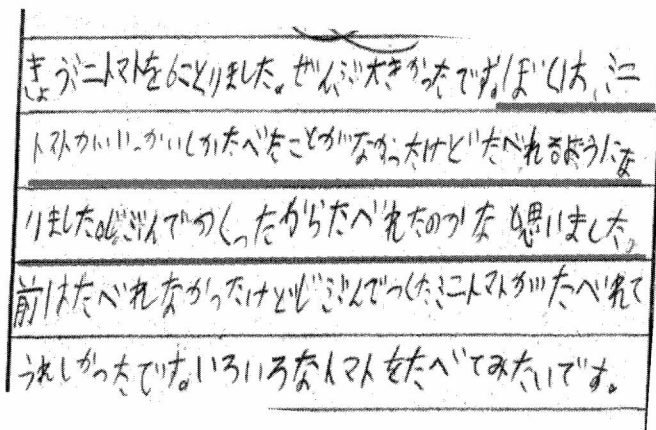 きょうミニトマトを6ことりました。ぜんぶ大きかったです。ぼくは、ミニ
トマトがいじっかいしかたべたことがなかったけどたべれるようにな
りました。じぶんでつくったからたべれたのかなと思いました。
前はたべれなかったけどじぶんでつくったミニトマトがたべれて
うれしかったです。いろいろなトマトをたべてみたいです。